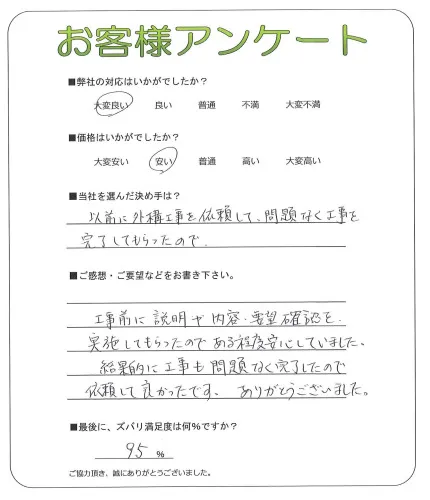 お客様アンケート
■弊社の対応はいかがでしたか？
大変良い 良い 普通 不満 大変不満
■価格はいかがでしたか？
大変安い 安い 普通 高い 大変高い
■当社を選んだ決め手は？
以前に外構工事を依頼して、問題なく工事を
完了してもらったので、
■ご感想・ご要望などをお書き下さい。
工事前に説明や内容・要望確認を、
実施してもらったのである程度安心していました、
結果的に工事も問題なく完了したので
依頼して良かったです、 ありがとうございました。
■最後に、ズバリ満足度は何%ですか？
95 %
ご協力頂き、誠にありがとうございました。